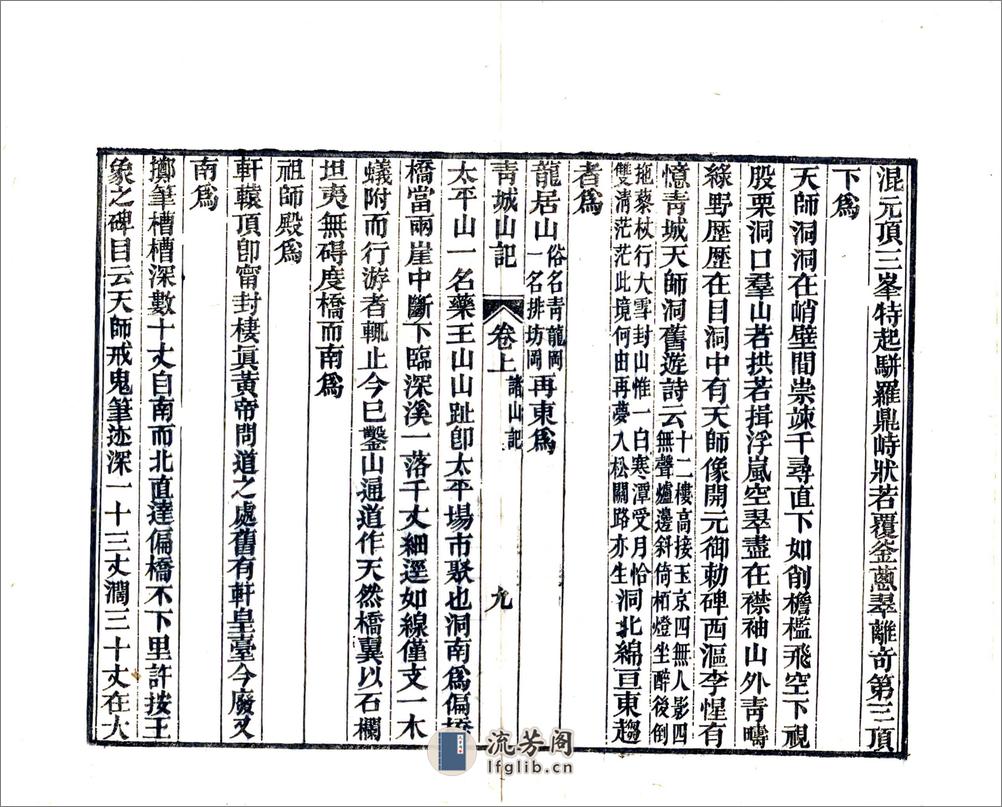 混元頂三峯特起駢羅鼎峙狀若覆釜蔥翠離奇第三頂
下爲
天師洞洞在峭壁間崇竦千尋直下如削檐檻飛空下視
股栗洞口羣山若拱若揖浮嵐空翠盡在襟袖山外靑疇
綠野歷歷在目洞中有天師像開元御勅碑西漚李惺有
憶靑城天師洞舊遊詩云
十二樓高接玉京四無人影四
無聲爐邊斜倚栢燈坐醉後倒
拖藜杖行大雪封山惟一白寒潭受月恰
雙淸茫茫此境何由再夢入松關路亦生
洞北綿亘東趨
者爲
龍居山
俗名靑龍岡
一名排坊岡
再東爲
靑城山記
卷上
諸山記
九
太平山一名藥王山山趾卽太平場市聚也洞南爲偏橋
橋當兩崖中斷下臨深溪一落千丈細逕如線僅支一木
蟻附而行游者輒止今已鑿山通道作天然橋翼以石欄
坦夷無碍度橋而南爲
祖師殿爲
軒轅頂卽甯封棲眞黃帝問道之處舊有軒皇臺今廢又
南爲
擲筆槽槽深數十丈自南而北直達偏橋不下里許按王
象之碑目云天師戒鬼筆迹深一十三丈濶三十丈在大
流芳阁
lfglib.cn